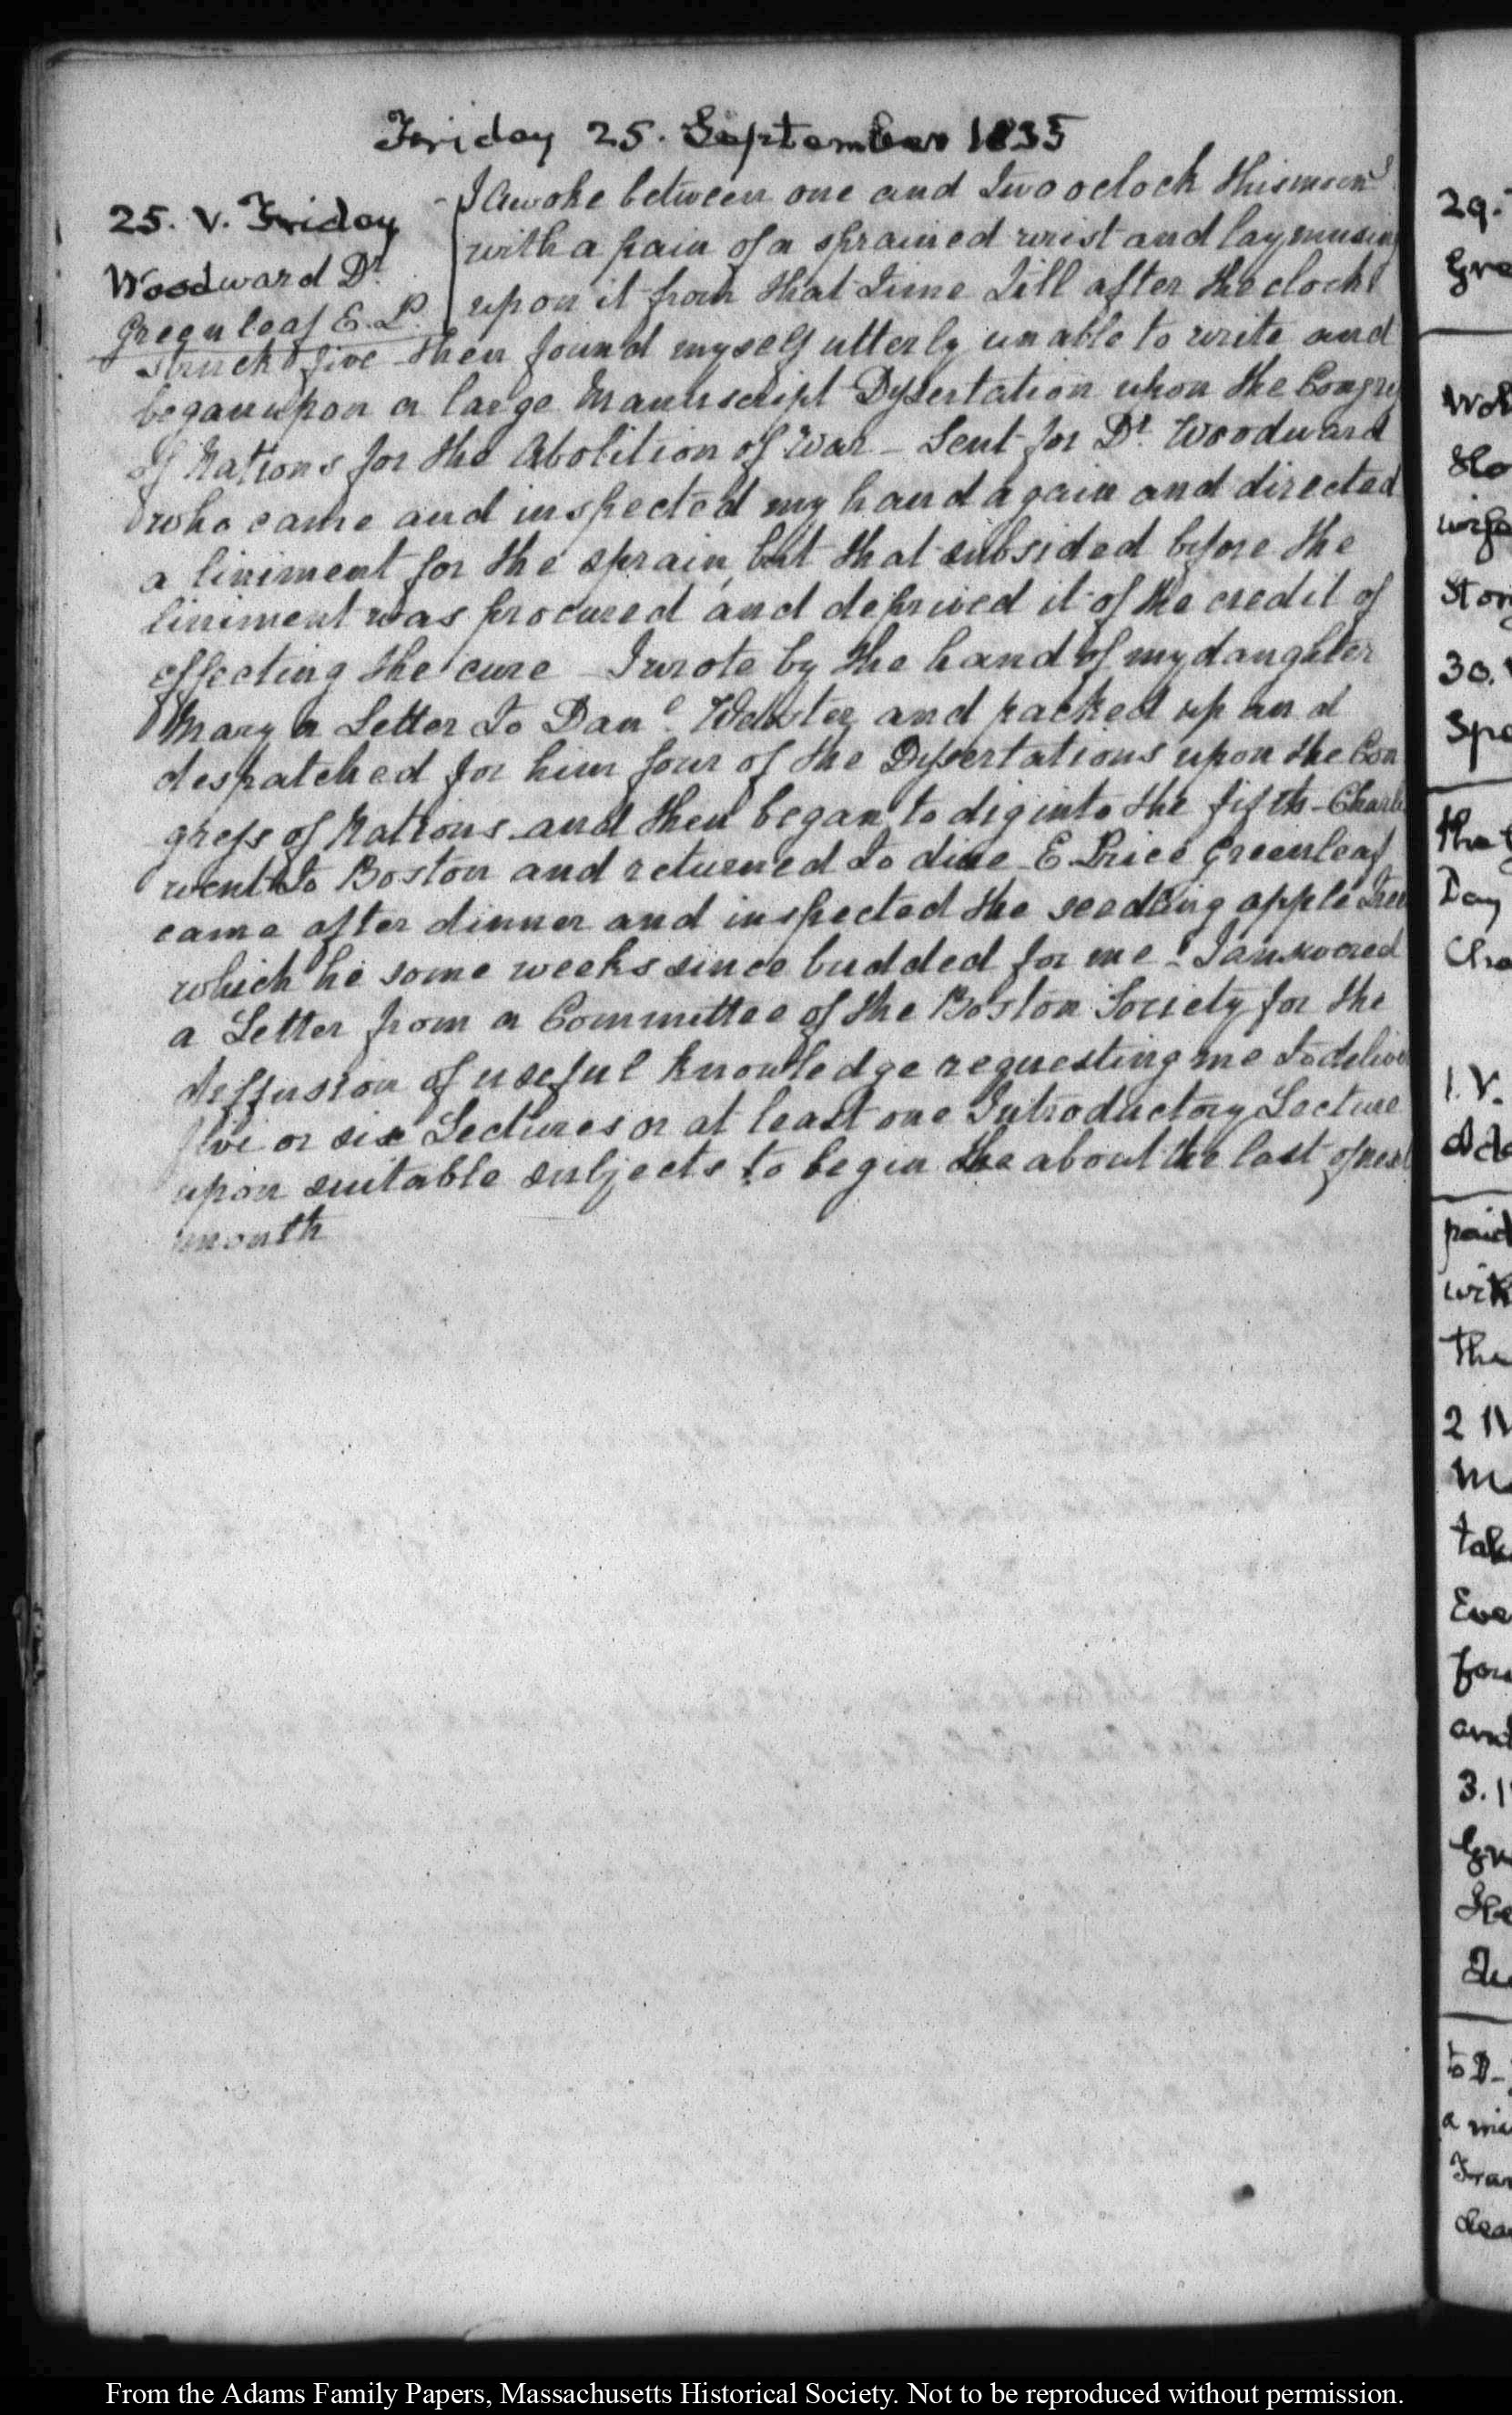 Friday 25. September 1835
25. V. Friday
Woodward Dr.
Greenleaf E. P.
I awoke between one and two oclock this morng
with a pain of a sprained wrist and lay musing
upon it from that time till after the clock
struck five then found myself utterly unable to write and
began upon a large Manuscript Dissertation upon the Congress
of Nations for the Abolition of War – Sent for Dr. Woodward
who came and inspected my hand again and directed
a liniment for the sprain, but that subsided before the
liniment was procured and deprived it of the credit of
effecting the cure – I wrote by the hand of my daughter
Mary a Letter to Danl. Webster, and packed up and
despatched for him four of the Dissertations upon the Con
gress of Nations and then began to dig into the fifth – Charles
went to Boston and returned to dine – E Price Greenleaf
came after dinner and inspected the seedling apple trees
which he some weeks since budded for me – I answered
a Letter from a Committee of the Boston Society for the
diffusion of useful knowledge requesting me to deliver
five or six Lectures or at least one Introductory Lecture
upon suitable subjects to begin the about the last of next
month
29.
Gre
30.
Spe
the
Day
Cha
1. V.
paid
with
the
2 IV
tak
Eve
for
and
3. IV
to D-
a
From the Adams Family Papers, Massachusetts Historical Society. Not to be reproduced without permission.